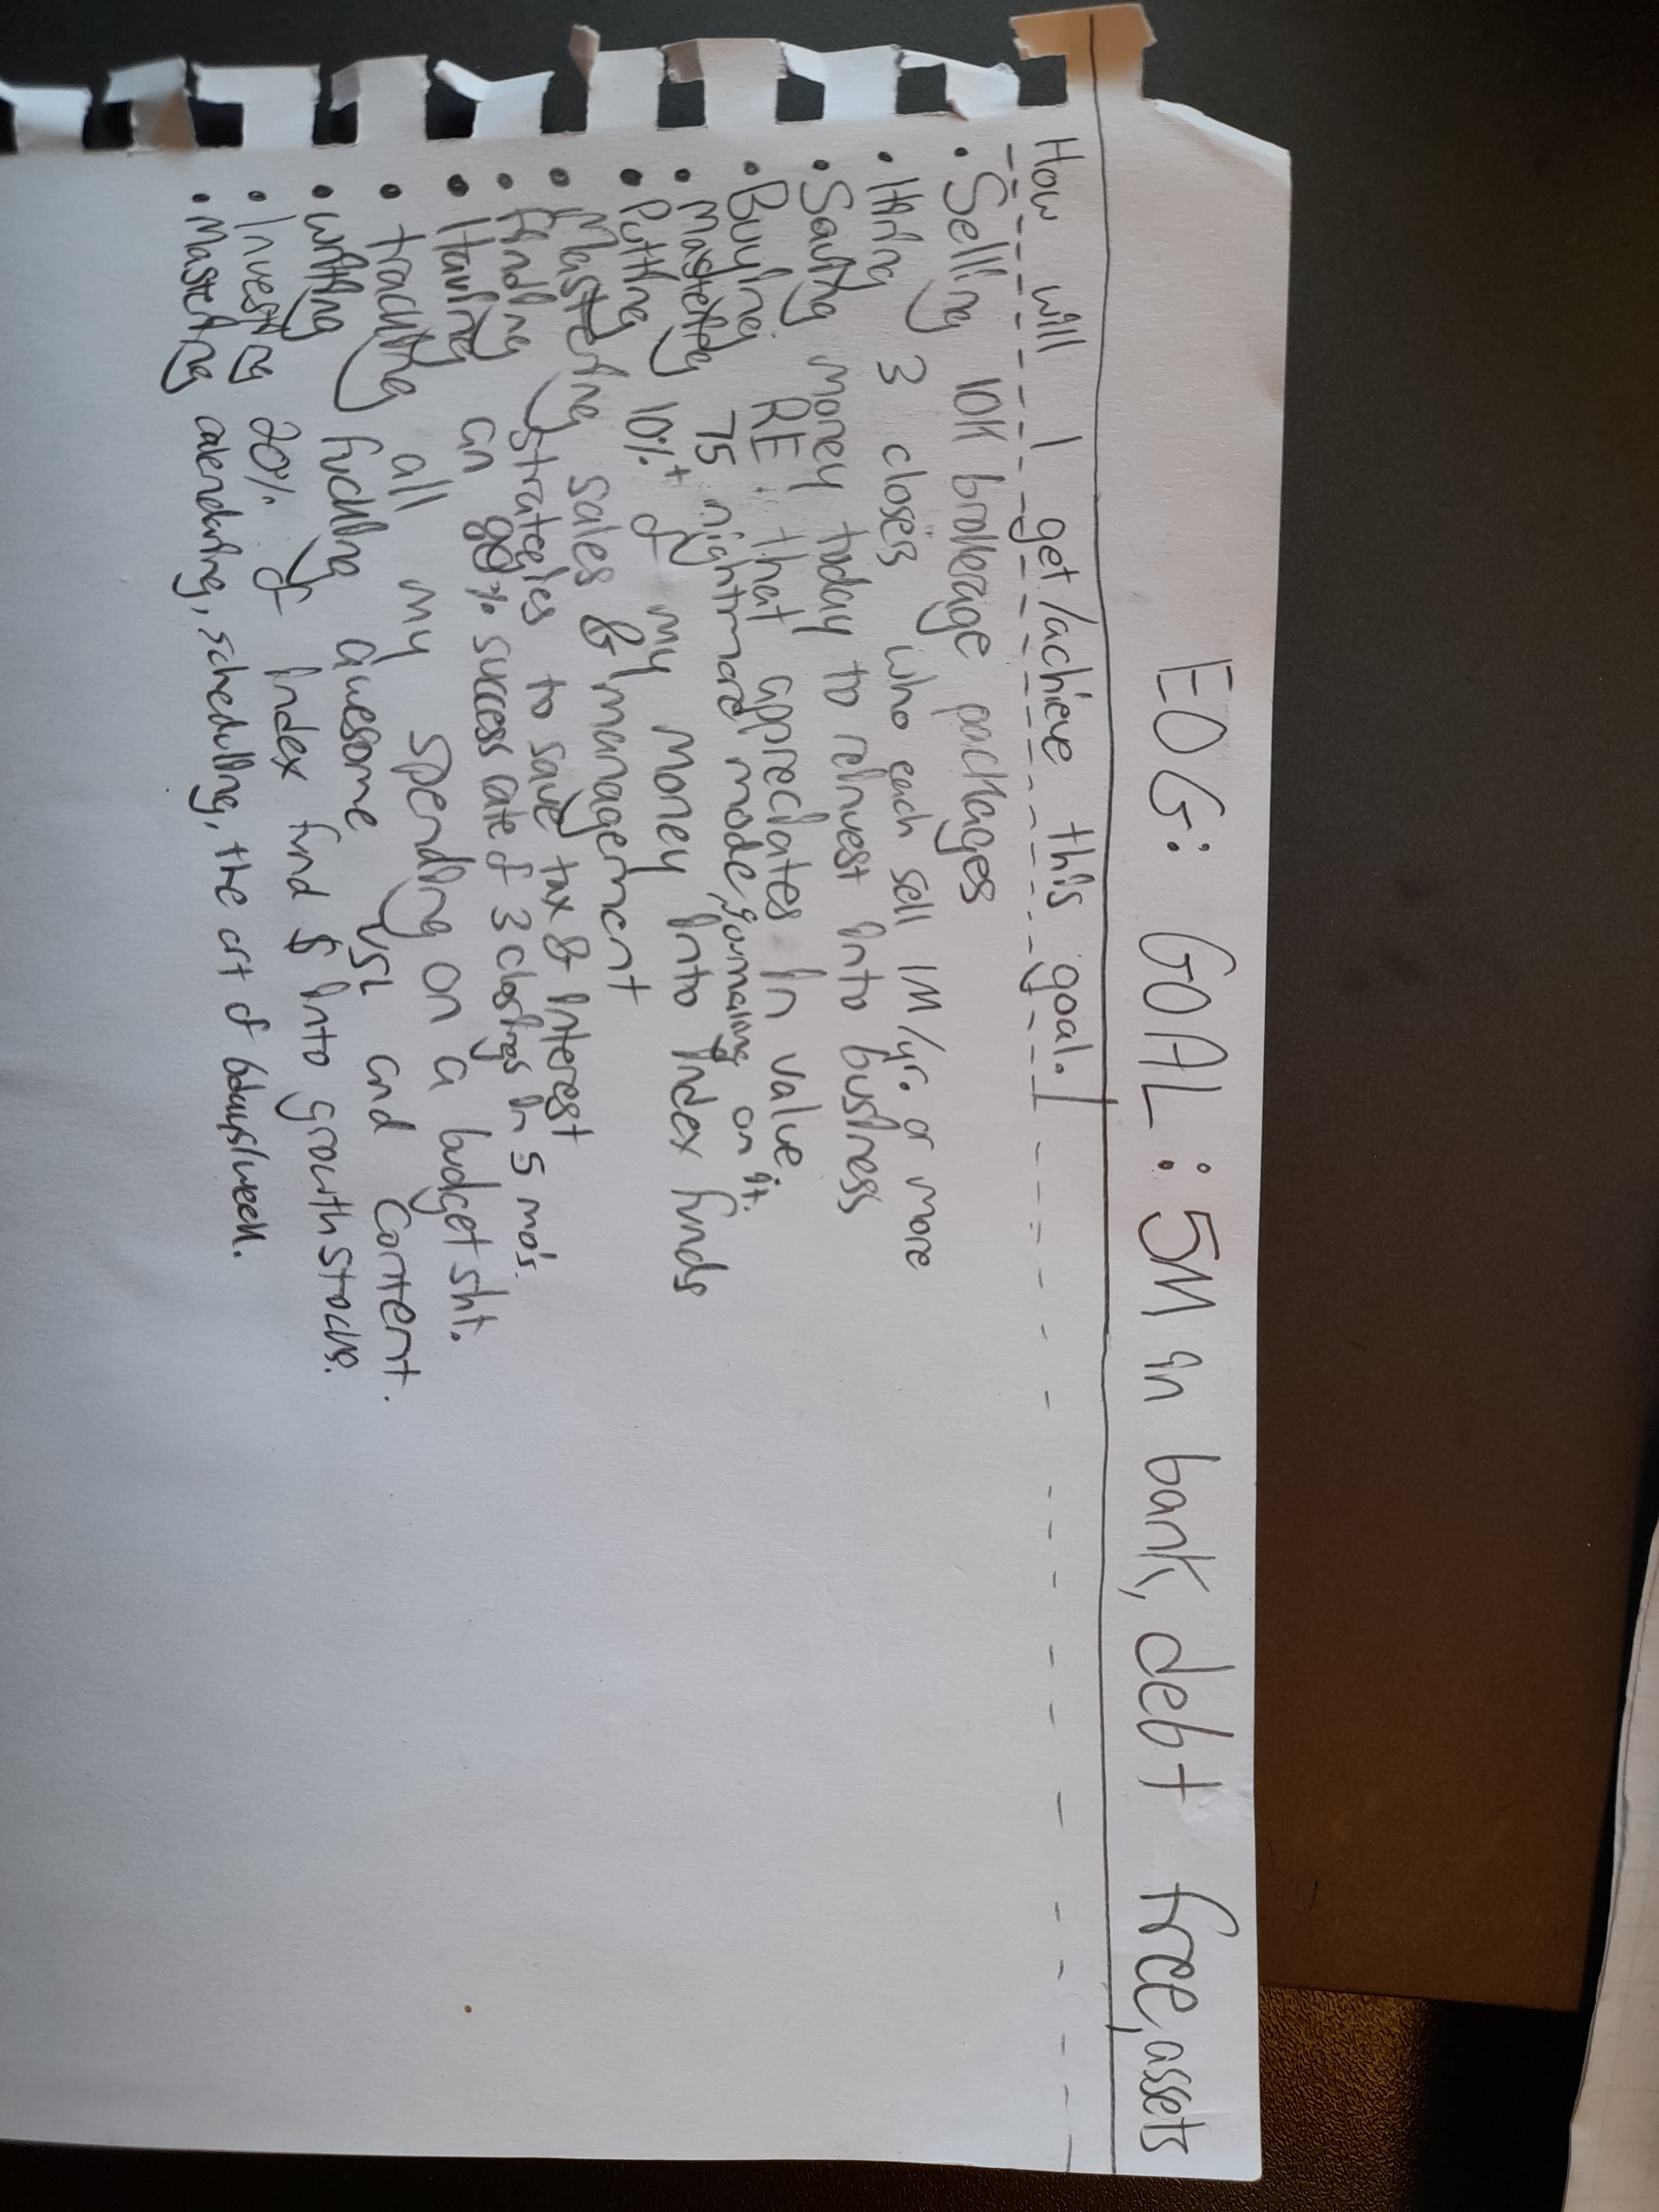 EOG: GOAL: 5M in bank, debt free, assets
How will I get/achieve this goal.
• Selling 10K brokerage packages
• Hiring 3 closers who each sell 1M/yr. or more
• Saving money today to reinvest into business
• Buying RE that appreciates in value
• Mastering 75 nightmare mode, journaling on it.
• Putting 10%+ of my money into index funds
• Mastering sales & management
• finding strategies to save tax & interest
• Having an 80% success rate of 3 closings in 5 mo's.
• tracking all my spending on a budget sht.
• writing fucking awesome VSL and Content.
• Investing 20% of index fund $ into growth stocks.
• Mastering calendaring, scheduling, the art of 6days/week.